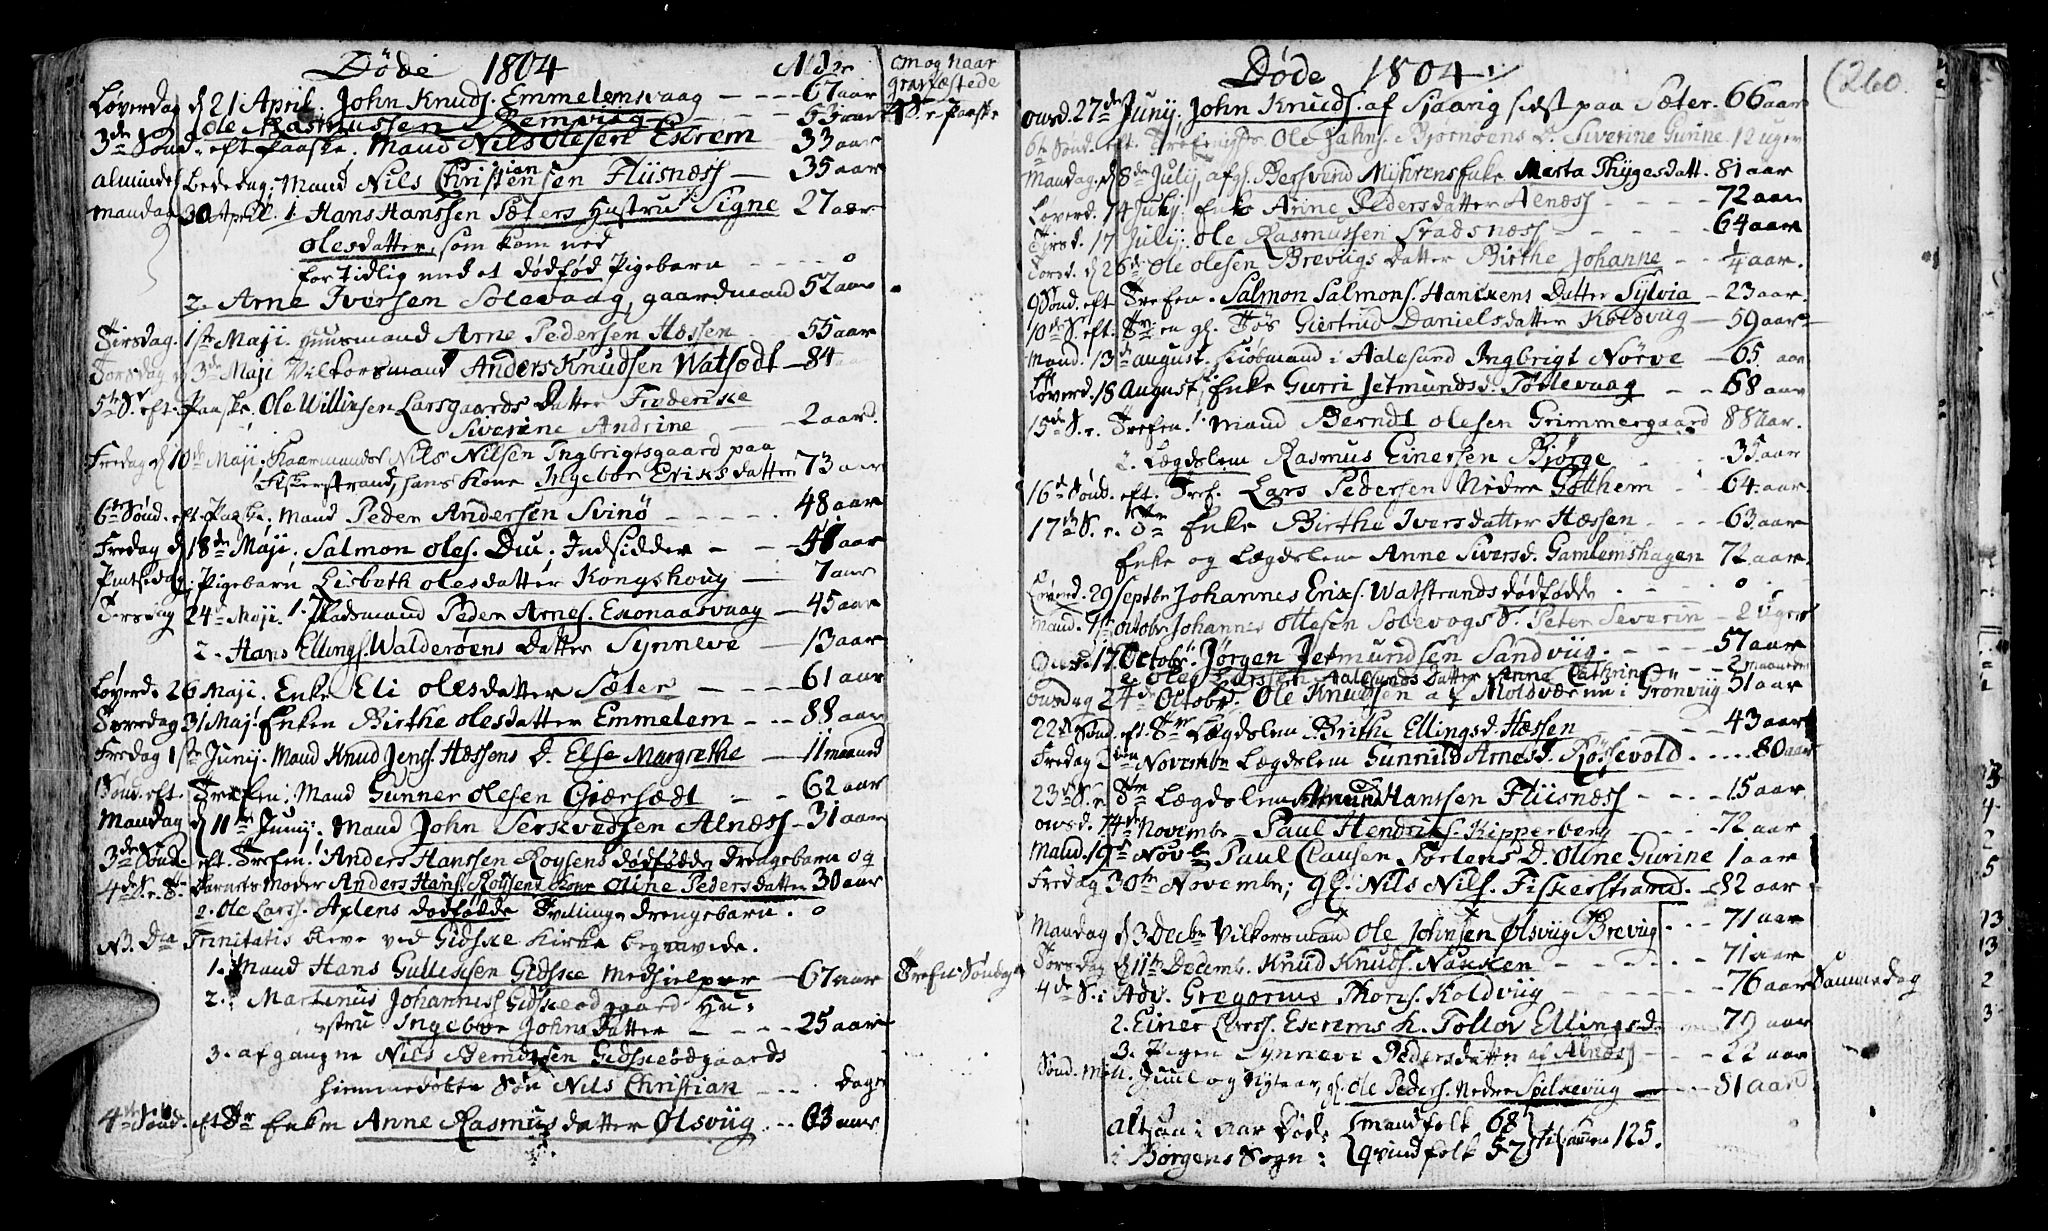 Døde 1804 Alder
om og naar
grasfæstede
Løverdag d 21 April. John Knuds. Emmelemsvaag - - - - 67 aar
Ole Rasmussen Remviig - - - 53 aar 4 S. e. Paaske
3de Sønd. eft. Paaske. Mand Nils Olesen Estrem - 33 aar
alminde. Bededag: Mand Nils Christensen Fliisnæss - 35 aar
Mandag 30 April. 1. Hans Hanssen Sæters Hustru Signe 27 aar
Olesdatter, som kom ned
for tidlig med et dødfød Pigebarn - - - - - 0
2. Arne Iversen Solevaag, gaardmand 52 aar
Tirsdag. 1ste Maji. Huusmand Arne Pedersen Hæssen - - - 55 aar
Torsdag d 3de Maji Vilkorsmand Anders Knudsen Watsødt - 84 aar
5te S. eft. Paaske. Ole Willixsen Larsgaards Datter Frideriske
Siverine Andrine - - 2 aar.
Fredag d 10de Maji. Kaarmanden Nils Nilsen Ingbrigtsgaard paa
Fiskerstrand, hans Kone Ingebor Eriksdatter 73 aar
6te Sønd. eft. Paaske. Mand Peder Andersen Svinø - - - - 48 aar
Fredag d 18de Maji. Salmon Oles. Duu, Indsidder - - 51 aar
Pintsedag. Pigebarn Lisbeth Olesdatter Kongshoug - - 7 aar
Torsdag 24 Maji. 1. Pladsmand Peder Arnes. Exonaasvaag - 45 aar
2. Hans Ellings. Walderøens Datter Synneve - 13 aar
Løverd. 26 Maji. Enke Eli Olesdatter Sæter - - - - 61 aar
Torsdag 31 Maj. Enken Birthe Olesdatter Emmelem - - - 88 aar
Fredag 1ste Junij. Mand Knud Jens. Hæssens D. Else Margrethe - 11 maaned
1 Sønd. eft. Trefen: Mand Gunner Olesen Giærsædt - - 62 aar
Mandag d 11te Junij. Mand John Serkvedsen Alnæss - 31 aar
3de Sønd. eft. Trefen. Anders Hanssen Roysens dødfødde drengebarn og
4de S. e. Barnets Moder Anders Hans. Roysens Kone Oline Pedersdatter 30 aar
2. Ole Larss. Axlens dødfødde Tvillinge drengebarn. 0
NB. Dca Trinitatis bleve ved Gidske Kirke begravede.
1. Mand Hans Gullixsen Gidske Medhielper - 67 aar Trefit. Søndag
2. Martinus Johanness Gidskeødgaard Hu-
stru Ingebor Johnsdatter - - - - 25 aar
3. afgangne Nils Berntsen Gidskeødgaards
hiemmedøbte Søn Nils Christian - - - . dage
4de Sønd. eft Tr Enken Anne Rasmusdatter Ølsviig - - 63 aar
Døde 1804. 260.
onsd. 27de Junij. John Knuds. af Sjaarig sidst paa Sæter. 66 aar
6te Sønd. eft. Trefenigh. Ole Jahns. Bjørnøens D. Siverine Gurine. 12 uger
Mandag. d 8de July, afg. Bersvend Myhrens Enke Marta Thygesdatt. 81 aar
Løverd. 14 July. Enke Anne Pedersdatter Alnæss - - - - 72 aar
Tirsd. 17 Julij. Ole Rasmussen Stadsnæss - - - - 64 aar
Torsd. d 26de Ole Olesen Breviigs Datter Birthe Johanne - - ¼ aar.
9 Sønd. eft Trefen. Salmon Salmons. Hanckens Datter Sylvia - 23 aar.
10de S. eft. Tr. en gl. Tøs Giertrud Danielsdatter Koldviig - 59 aar
Mand. 13de August. Kiøbmand i Aalesund Ingbrigt Nørve - 65 aar
Løverd. 18 August, Enke Gurri Jetmundsd. Tørlevaag - - 68 aar
15de S. e. Trefen. 1. Mand Berndt Olesen Grimmergaard 88 aar.
2. Lægdslem Rasmus Einersen Bjørge - - 35 aar
16de Sønd. eft. Tref. Lars Pedersen Nedre Godthem - 64 aar
17de S. e. Tr Enke Birthe Iversdatter Hæssen - - - - 63 aar
Enke og Lægdslem Anne Siversd. Gamlemshagen 72 aar.
Løverd. 29 Septbr Johannes Erixs. Watstrands dødfødde - - - 0
Mand. 1ste Octobr Johannes Ottesen Solevogs S. Peter Severin - 2 uger
Onsd. 17 Octobr. Jørgen Jetmundsen Sandviig - - - 57 aar
2. Ole Larssen Aalesunds Datter Anne Cathrine 2 maaneder
onsdag 24de Octobr. Ole Knudsen af Moldværnn i Grønviig 51 aar
22de Sønd. eft. Tr Lægdslem Brithe Ellingsd. Hæssen - - 43 aar
Fredag 2den Novembr Lægdslem Gunnild Arnesd. Røssevold . . . . . 80 aar
23de S. e. Tr Lægdslem Amund Hanssen Fliisnæss - - - - 15 aar
onsd. 14de Novembr - Paul Hendriks. Kipperberg - - - - 72 aar
Mand. 19de Novbr Paul Clausen Tørlens D. Oline Gurine 1 aar
Fredag 30te Novembr; gl. Nils Nils. Fiskerstrand - 82 aar
Mandag d 3 Decbr Vilkorsmand Ole Johnsen Ølsviig Breviig . . . 71 aar
Torsdag d 11te Decemb. Knud Knuds. Naxken - - - - - 71 aar
4de S. i Adv. Gregorius Thors. Koldviig - - - - - - 76 aar Sammedag
2. Einer Larss. Estrems K. Tollov Ellingsd. - 79 aar
3. Pigen Synnevi Pedersdattr af Alnæss - - - 22 aar
Sønd. mell. Juul og Nytaar, gl. Ole Peders. Nedre Spilkeviig - - - 81 aar
altsaa i aar Døde { Mandfolk 68 } tilsamen 125.
i Borgens Sogn: { qvindfolk 57